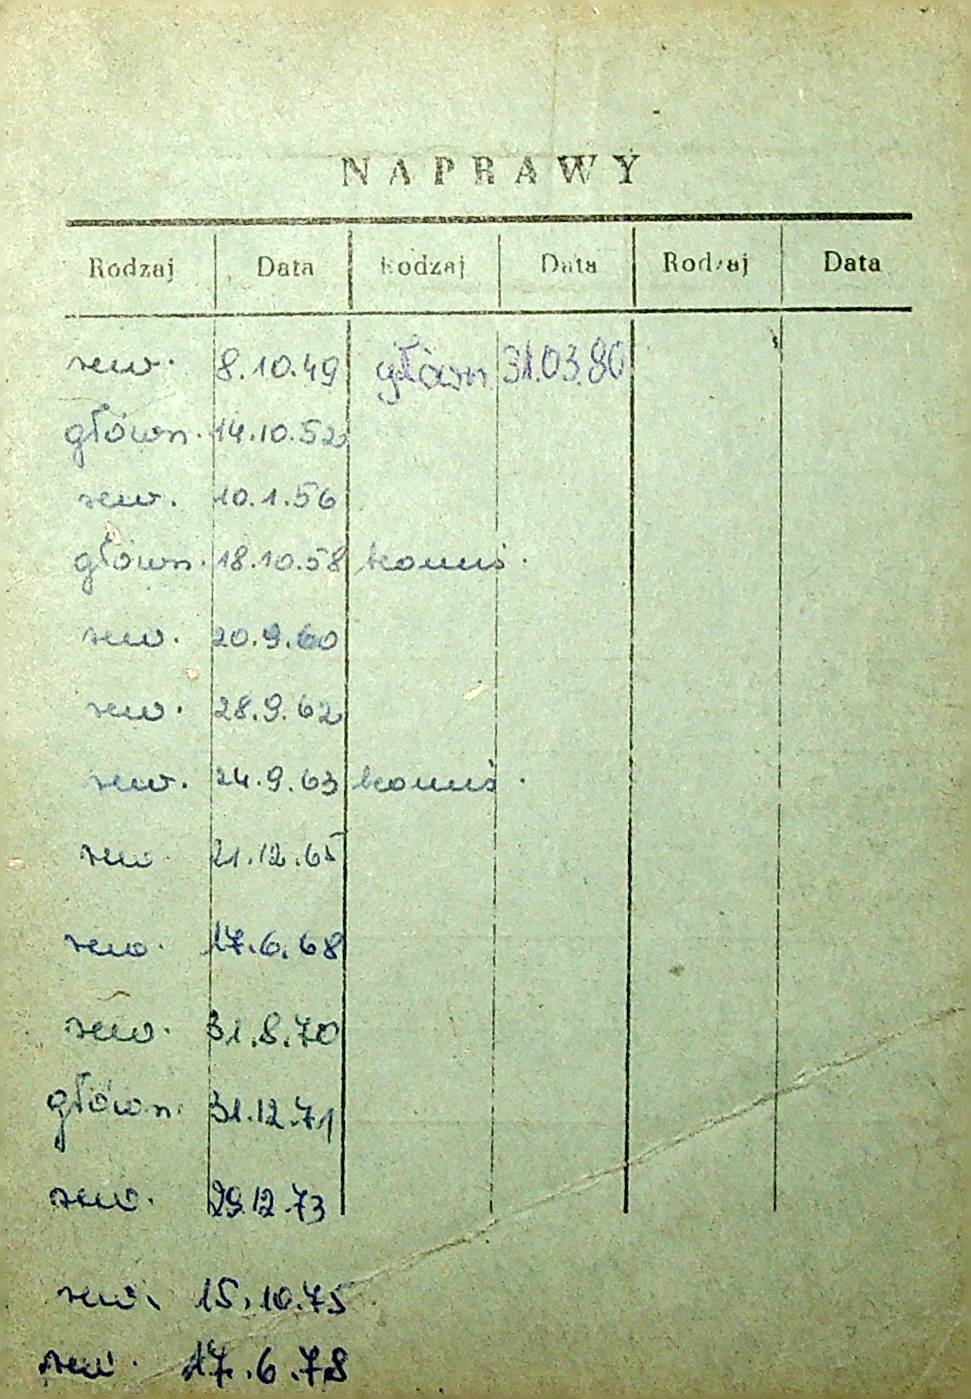 NAPRAWY
Rodzaj Data Rodzaj Data Rodzaj Data
rew. 8.10.49 główn 31.03.80
główn. 14.10.52
rew. 10.1.56
główn. 18.10.58
rew. 20.9.60
rew. 28.9.62
rew. 24.9.63
rew. 21.12.65
rew. 17.6.68
rew. 31.8.70
główn. 31.12.71
rew. 29.12.73
rew. 15.10.75
rew. 17.6.78